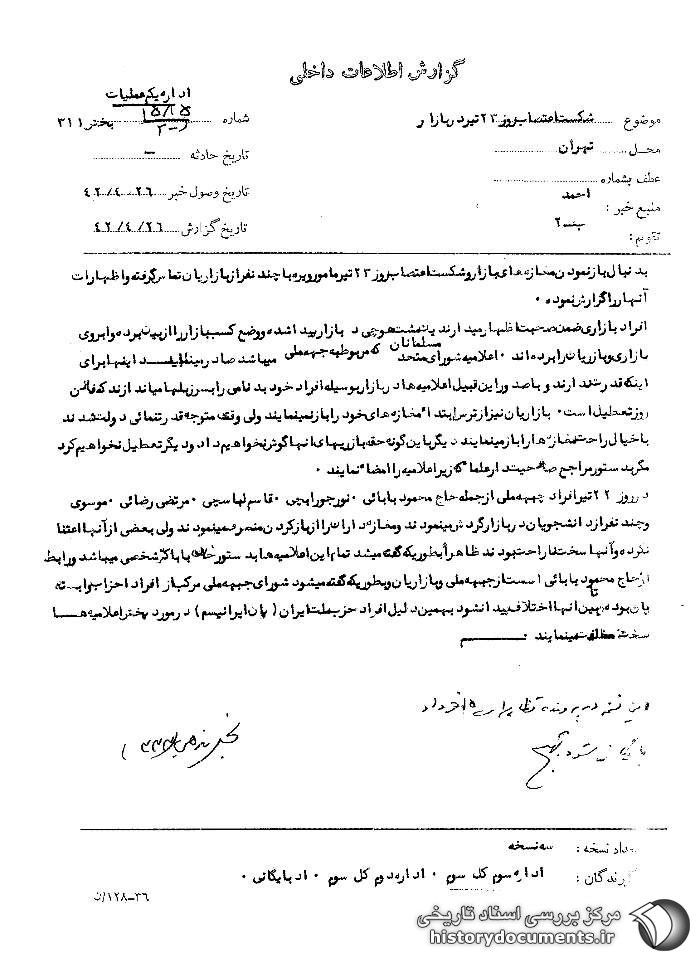 گزارش اطلاعات داخلی
اداره یکم عملیات
موضوع شکست اعتصاب روز ۲۳ تیر در بازار
شماره بختر ۳۱۱
محل تهران
تاریخ حادثه –
عطف بشماره
تاریخ وصول خبر ۴۲/۴/۲۶
منبع خبر : احمد
تاریخ گزارش ۴۲/۴/۲۶
تقویم : ب–۲
بدنبال باز نمودن مغازه های بازار و شکست اعتصاب روز ۲۳ تیر مامور ویژه با چند نفر از بازاریان تماس گرفته و اظهارات
آنها را گزارش نموده ۰
افراد بازاری ضمن صحبت اظهار میدارند یک مشت هوچی در بازار پیدا شده و وضع کسب بازار را از بین برده و ابروی
بازاری و بازاریان را برده اند ۰ اعلامیه شورای متحد مسلمانان که مربوط به جبهه ملی میباشد صادر مینمایند اینها برای
اینکه قدرت ندارند و با صدور این قبیل اعلامیه ها در بازار بوسیله افراد خود بدنامی را بسر زبانها میاندازند که فلان
روز تعطیل است ۰ بازاریان نیز از ترس ابتدا مغازه های خود را باز نمینمایند ولی وقت متوجه قدرتنمائی دولت شدند
با خیال راحت مغازه ها را باز مینمایند دیگر باین گونه حقه بازیهای آنها گوش نخواهیم داد و دیگر تعطیل نخواهیم کرد
مگر بدستور مراجع صلاحیتدار علما که زیر اعلامیه را امضاء نمایند ۰
در روز ۲۲ تیر افراد جبهه ملی از جمله حاج محمود بابائی ۰ نور جورابچی ۰ قاسم لباسچی ۰ مرتضی رضائی ۰ موسوی
و چند نفر از دانشجویان در بازار گردش مینمودند و مغازه داران را از باز کردن منصرف مینمودند ولی بعضی از آنها اعتنا
نکرده و آنها سخت ناراحت بودند ظاهراً بطوریکه گفته میشد تمام این اعلامیه ها بدستور باباکرشخصی میباشد و رابط
از حاج محمود بابائی است از جبهه ملی و بازاریان و بطوریکه گفته میشود شورای جبهه ملی مرکب از افراد احزاب وابسته
بان بوده تا بین آنها اختلاف پیدا نشود بهمین دلیل افراد حزب ملت ایران ( پان ایرانیسم ) در مورد پخش اعلامیه ها
سخت مخالفت مینمایند ۰
این نسخه در پرونده تظاهرات ۱۵ خرداد
بایگانی شود
تعداد نسخه : سه نسخه
گیرندگان : اداره سوم کل سوم ۰ اداره دوم کل سوم ۰ اد بایگانی ۰
۳۶–۱۲۸/ن
مرکز بررسی اسناد تاریخی
historydocuments.ir